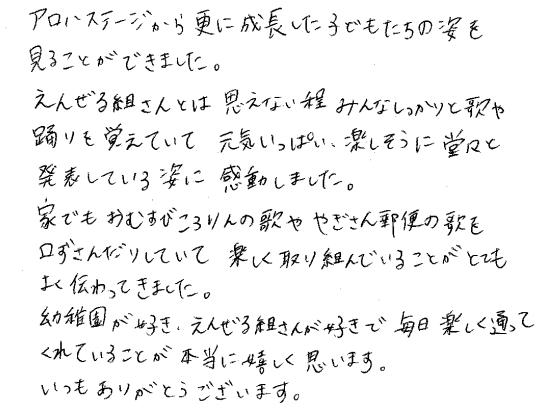 アロハステージから更に成長した子どもたちの姿を
見ることができました。
えんぜる組さんとは思えない程みんなしっかりと歌や
踊りを覚えていて 元気いっぱい、楽しそうに堂々と
発表している姿に 感動しました。
家でもおむすびころりんの歌や やぎさん郵便の歌を
口ずさんだりしていて 楽しく取り組んでいることがとても
よく伝わってきました。
幼稚園が好き、えんぜる組さんが好きで 毎日楽しく通って
くれていることが本当に嬉しく思います。
いつもありがとうございます。